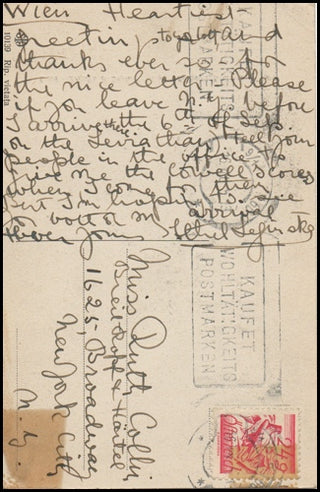 Wien Heartiest
Greetings to you and
thanks ever so for
the nice letter. Please
if you leave N.Y. before
I arrive the 6th of Sep.
on the Leviathan tell your
people in the office to
give me the Lowell scores
when I come for them.
But I'm hoping to see
you both on my arrival
Ever yours Ethel Leginska
10139 Rip. vietata
KAUFET
WOHLTÄTIGKEITS
POSTMARKEN
Miss Ruth Collin
Breitkopf & Härtel
1625, Broadway
New York City
N.Y.
KAUFET
WOHLTÄTIGKEITS
POSTMARKEN
24g
Österreich